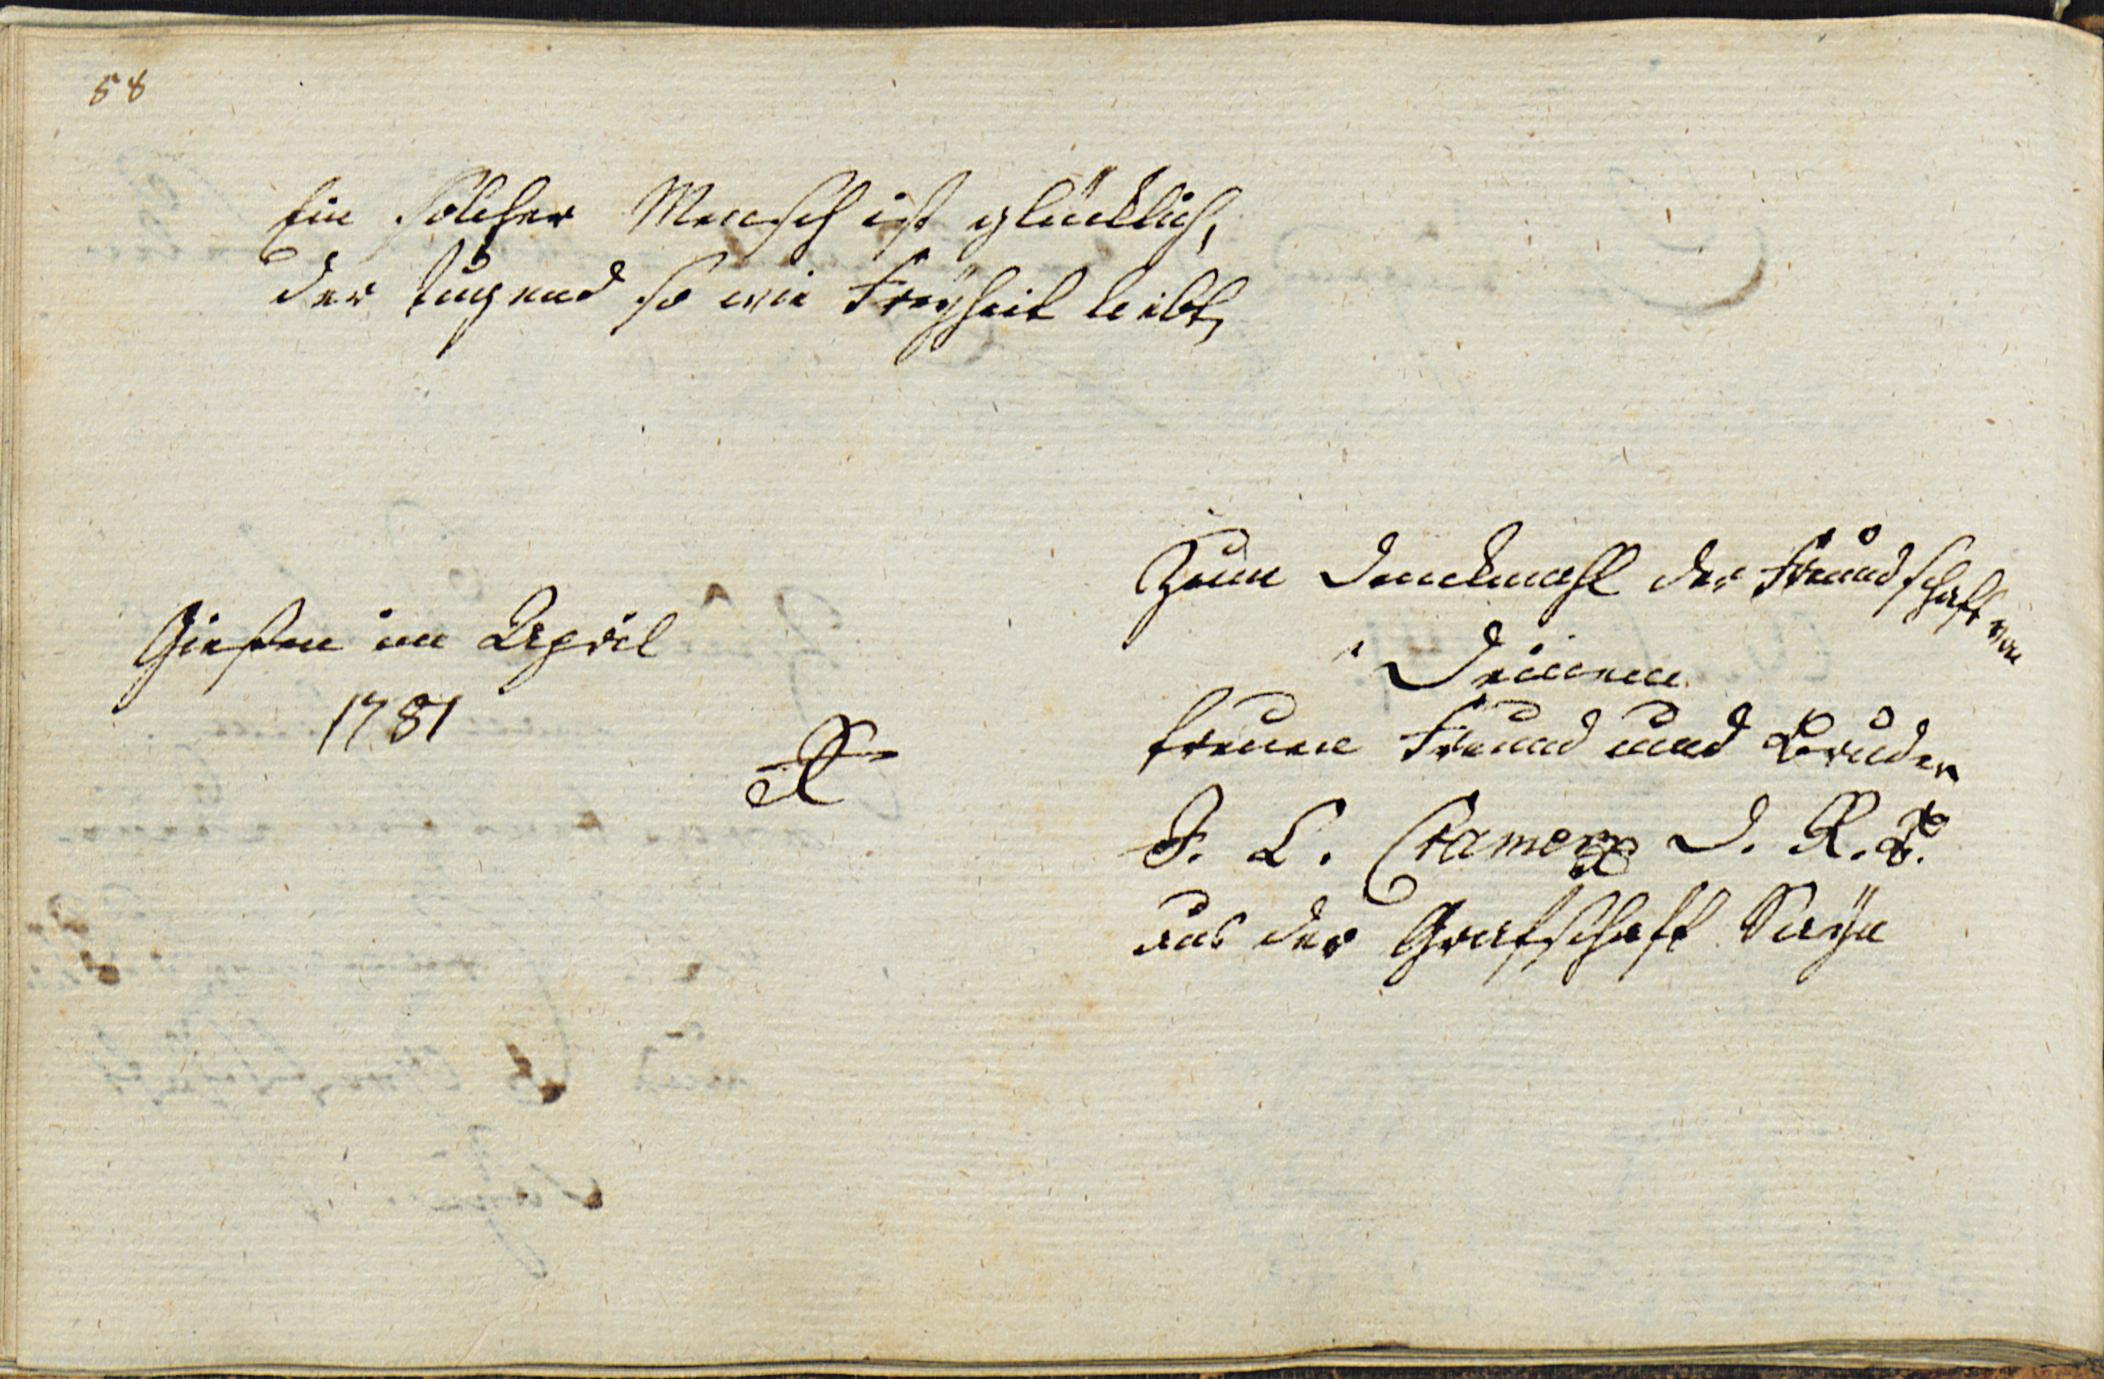 58
Ein solcher Mensch ist glücklich,
der Tugend so wie Freyheit liebt,
Zum Denckmahl der Freundschafft von
Deinem
Giessen im April
1781
treuen Freund und Bruder
F. L. Cramer D. R. B.
aus der Grafschafft Sayn